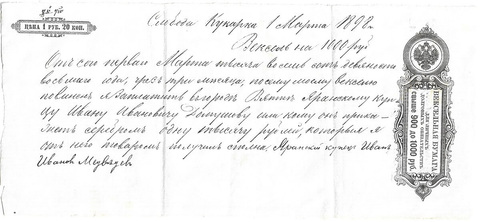 ЦѢНА 1 РУБ. 20 КОП.
Слобода Кукарка 1 Марта 1898 г.
Вексель на 1000 руб
Отъ сего перваго Марта тысяча восемь сотъ девяносто
восьмаго года, чрезъ три месяца, по сему моему векселю
повиненъ я заплатить въ городѣ Вяткѣ Яранскому куп-
цу Ивану Ивановичу или кому онъ прика-
жетъ серебромъ одну тысячу рублей, которыя я
отъ него товаромъ получилъ сполна; Яранскій купецъ Иванъ
Ивановъ Медвѣдевъ
ВЕКСЕЛЬНАЯ БУМАГА
для личныхъ
долговыхъ обязательствъ
свыше 900 до 1000 руб.